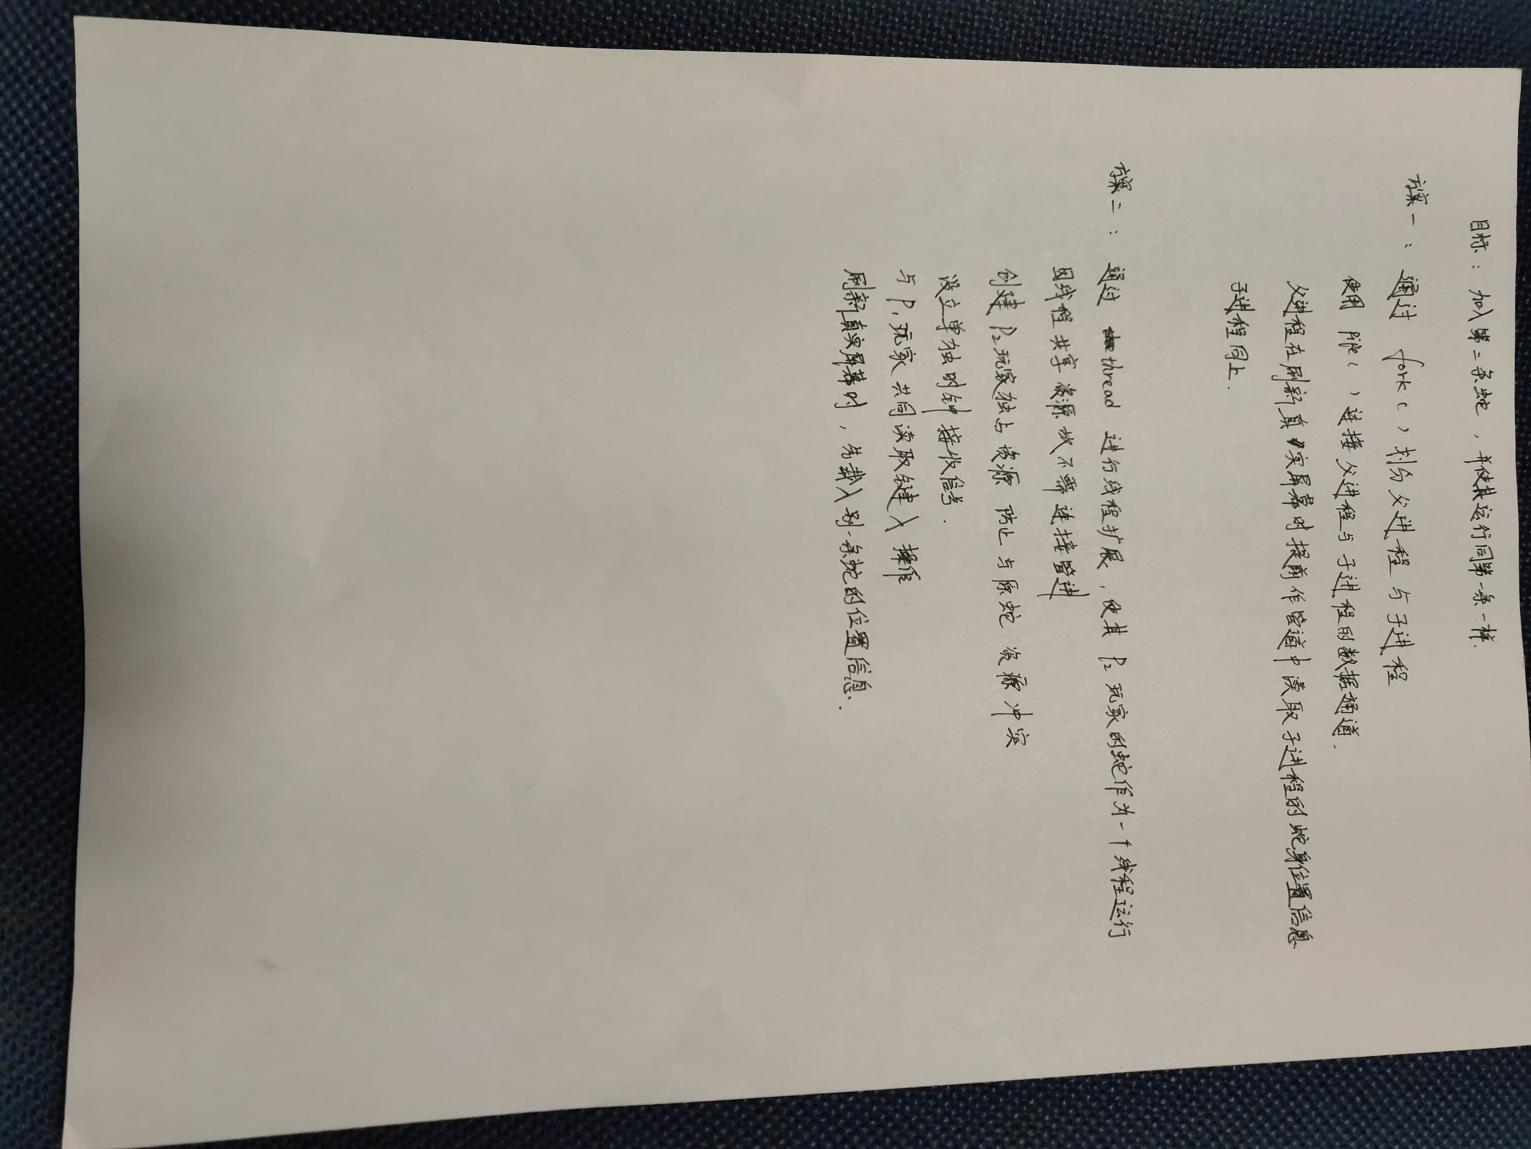 目标：加入第二条蛇，并使其运行同第一条一样.
方案一：通过 fork（）划分父进程与子进程
使用 pipe（）连接父进程与子进程的数据通道.
父进程在刷新真实屏幕时提前作管道中读取子进程的蛇身位置信息
子进程同上.
方案二：通过 thread 进行线程扩展，使其 P₂ 玩家的蛇作为一个线程运行
因线程共享资源故不需连接管进
创建 P₂玩家独占资源 防止与原蛇资源冲突
设立单独时钟接收信号.
与 P₁ 玩家共同读取键入操作
刷新真实屏幕时，先载入别一条蛇的位置信息.